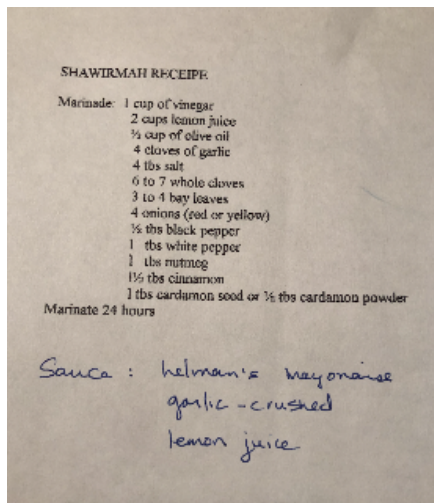 SHAWIRMAH RECEIPE
Marinade: 1 cup of vinegar
2 cups lemon juice
½ cup of olive oil
4 cloves of garlic
4 tbs salt
6 to 7 whole cloves
3 to 4 bay leaves
4 onions (red or yellow)
½ tbs black pepper
1 tbs white pepper
1 tbs nutmeg
1½ tbs cinnamon
1 tbs cardamon seed or ½ tbs cardamon powder
Marinate 24 hours
Sauce : helman's mayonaise
garlic - crushed
lemon juice